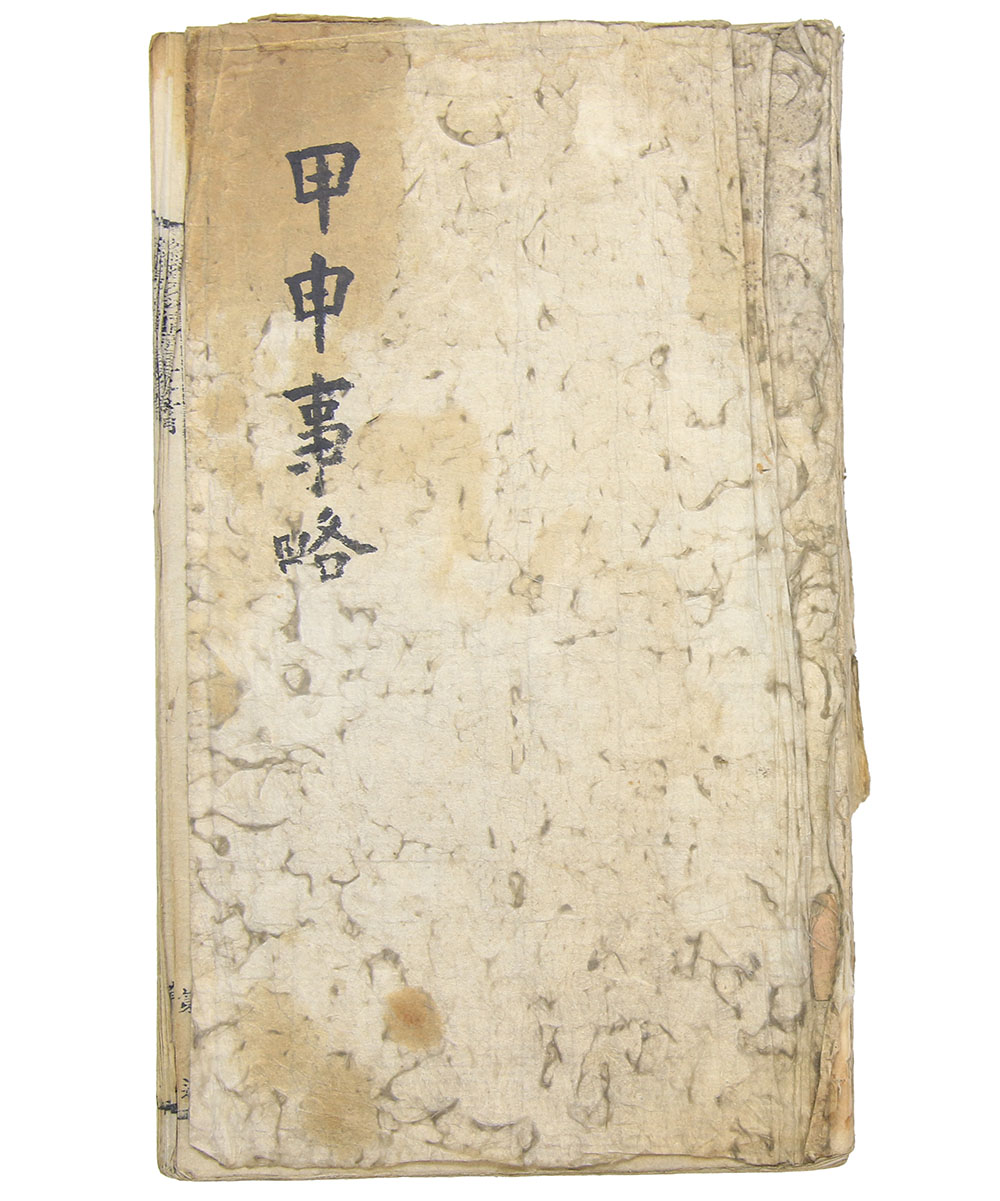 甲申事略